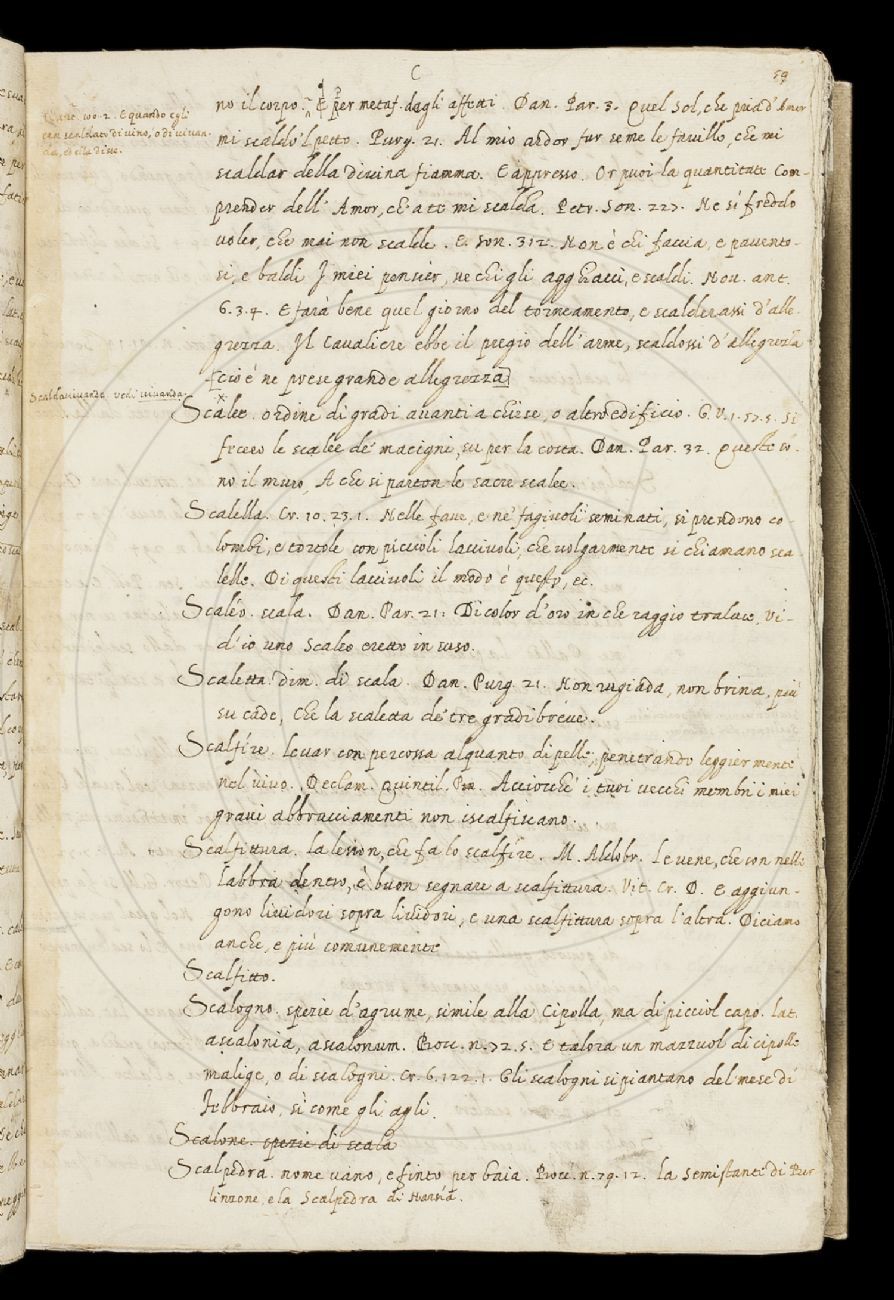 C
59
no il corpo. E per metaf. degli affeti. Dan. Par. 3. Quel Sol, che pria d'Amor
mi scaldò 'l petto. Purg. 21. Al mio ardor fur seme le faville, che mi
scaldar della divina fiamma. E appresso. Or puoi la quantitate Com-
prender dell' Amor, ch'a te mi scalda. Petr. Son. 227. Ne sì freddo
voler, che mai non scalde. E. Son. 312. Non è chi faccia, e pavento-
si, e baldi I miei pensier, ne chi gli agghiacci, e scaldi. Nov. ant.
6.3.4. E farà bene quel giorno del torneamento, e scalderassi d'alle-
grezza. Il Cavaliere ebbe il pregio dell' arme, scaldossi d'allegrezza
[cio è ne prese grande allegrezza]
Scalee. ordine di gradi avanti a chiese, o altro edificio. G. V. 1. 57. 5. Si
fecero le scalee de' macigni, su per la costa. Dan. Par. 32. Queste so-
no il muro, A che si parton le sacre scalee.
Scalella. Cr. 10. 23. 1. Nelle fave, e ne' fagiuoli seminati, si prendono co-
lombi, e tortole con piccioli lacciuoli, che volgarmente si chiamano sca-
lelle. Di questi lacciuoli il modo è questo, ec.
Scaléo. scala. Dan. Par. 21. Di color d'oro in che raggio traluce, Vi-
d'io uno Scaleo eretto in suso.
Scaletta. dim. di scala. Dan. Purg. 21. Non rugiada, non brina, più
su cade, Che la scaletta de' tre gradi breve.
Scalfire. levar con percossa alquanto di pelle, penetrando leggiermente
nel vivo. Declam. Quintil. Acciocchè i tuoi vecchi membri i miei
gravi abbracciamenti non iscalfiscano.
Scalfittura. la lesion, che fa lo scalfire. M. Aldobr. Le vene, che son nelle
labbra dentro, è buon segnare a scalfittura. Vit. Cr. D. E aggiun-
gono lividori sopra lividori, e una scalfittura sopra l'altra. Diciamo
anche, e più comunemente
Scalfitto.
Scalogno. spezie d'agrume, simile alla Cipolla, ma di picciol capo. lat.
ascalonia, ascalonium. Bocc. n. 72. 5. E talora un mazzuol di cipolle
malige, o di scalogni. Cr. 6. 122. 1. Gli scalogni si piantano del mese di
Febbraio, sì come gli agli.
Scalone. spezie di scala
Scalpedra. nome vano, e finto per baia. Bocc. n. 79. 12. la Semistante di Ber
linzone, e la Scalpedra di Narsia.
E quando egli
scaldato di vino, o di vivan-
Scaldavivande. vedi vivanda.